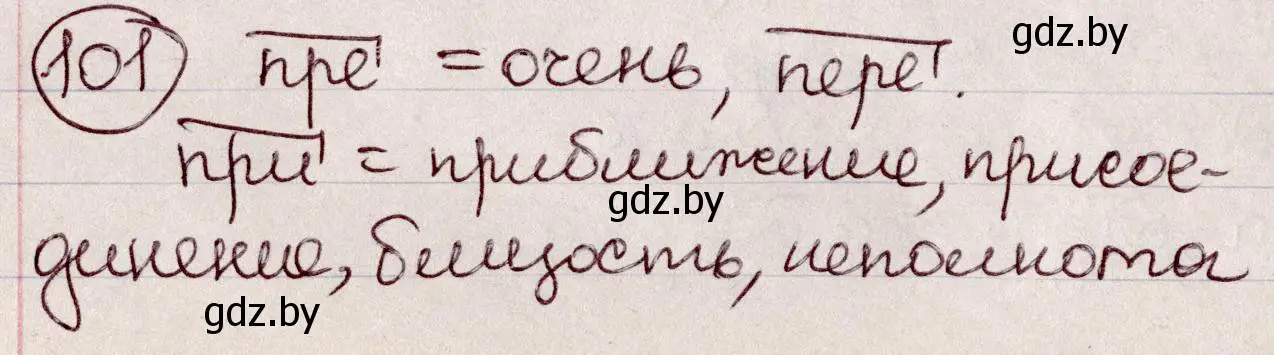 101 пре = очень, пере.
gdz.by
при = приближение, присое-
gdz.by
динение, близость, неполнота
gdz.by